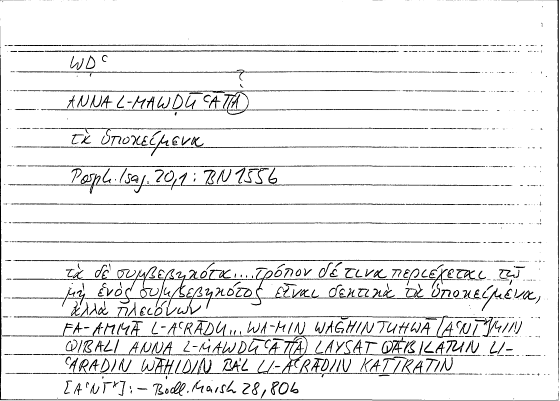 WḌʿ
?
ANNA L-MAWḌŪʿĀTI
τὰ ὑποκείμενα
Porph. Isag. 20,1 : BN 155b
τὰ δὲ συμβεβηκότα....τρόπον δέ τινα περιέχεται τῷ
μὴ ἑνὸς συμβεβηκότος εἶναι δεκτικὰ τὰ ὑποκείμενα,
ἀλλὰ πλειόνων
FA-AMMĀ L-AʿRĀḌU... WA-MIN WAǦHIN TUḤWĀ [AʿNĪ] MIN
QIBALI ANNA L-MAWḌŪʿĀTI LAYSAT QĀBILATUN LI-
ʿARAḌIN WĀḤIDIN BAL LI-AʿRĀḌIN KAṮĪRATIN
:— Bodl. Marsh 28, 80b